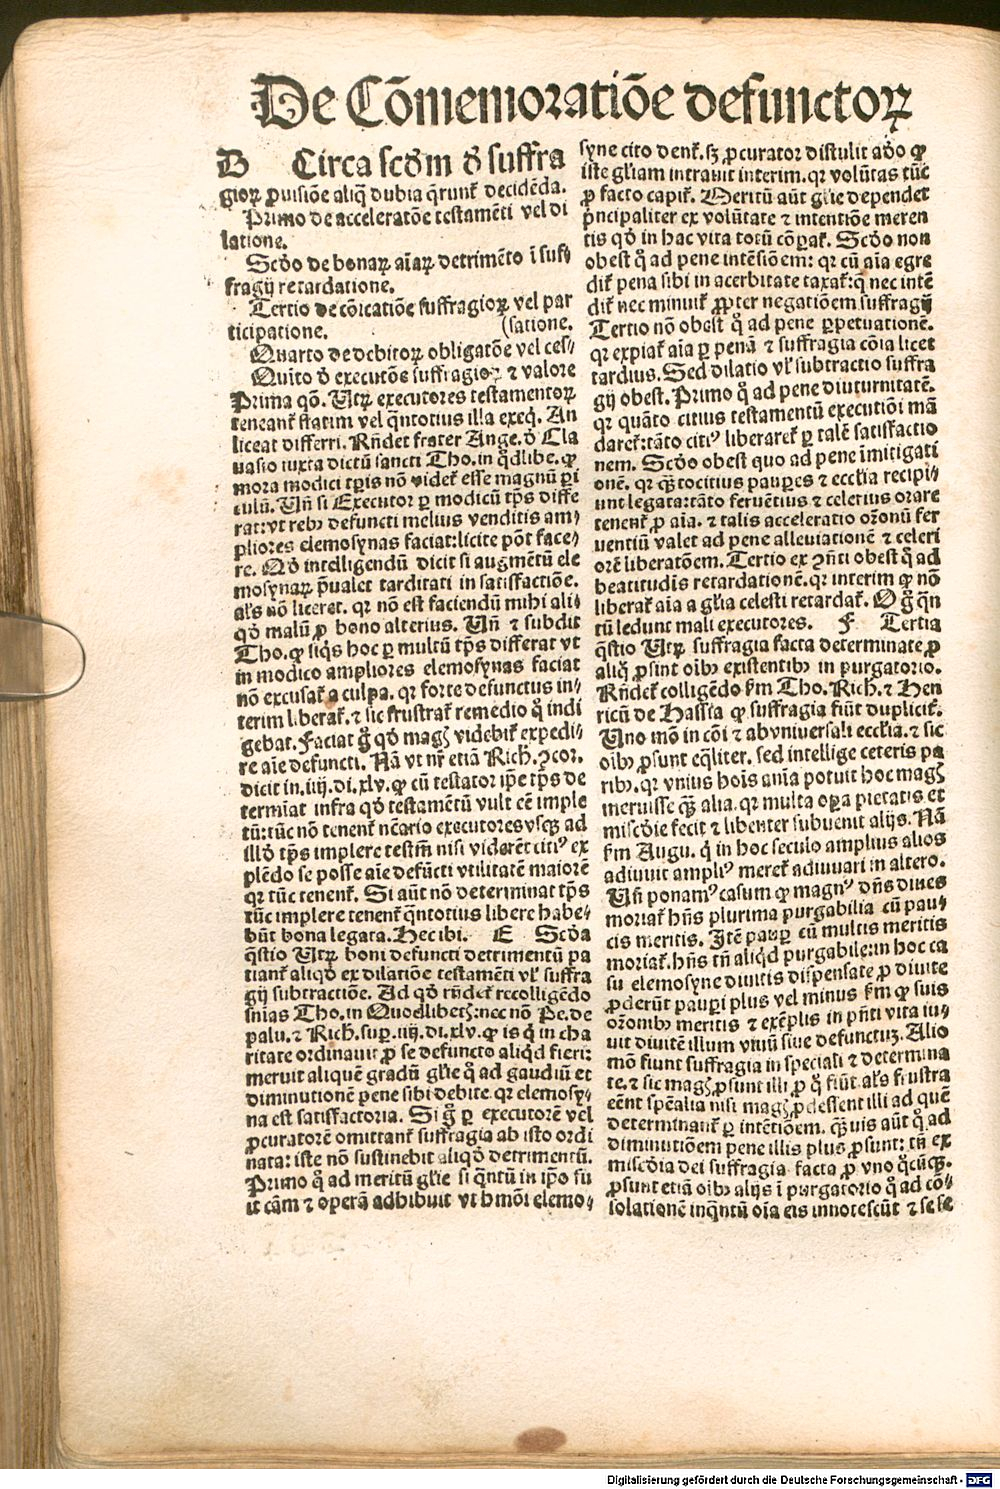 De Cōmemoratiōe defunctoꝝ
D Circa scd̄m d̄ suffra
gioꝝ ꝓuisiōe aliq̄ dubia q̄runt̄ decidēda.
Primo de acceleratōe testamēti vel di
latione.
Scd̄o de bonaꝝ aīaꝝ detrimēto ī suf⸗
fragij retardatione.
Tertio de cōicatiōe suffragioꝝ vel par
ticipatione. (satione.
Quarto de debitoꝝ obligatōe vel ces⸗
Quīto d̄ executōe suffragioꝝ ⁊ valore
Prima qō. Utꝝ executores testamentoꝝ
teneant̄ statim vel q̄ntotius illa exeq̄. An
liceat differri. Rn̄det frater Ange. d̄ Cla
uasio iuxta dictū sancti Tho. in q̄dlibe. ꝙ
mora modici tp̄is nō videt̄ esse magnū ꝑi
culū. Un̄ si Executor ꝑ modicū tp̄s diffe
rat: vt rebꝫ defuncti melius venditis am⸗
pliores elemosynas faciat: licite pōt face⸗
re. Qd̄ intelligendū dicit si augmētū ele
mosynaꝝ p̄ualet tarditati in satisfactiōe.
al̄s nō liceret. qr nō est faciendū mihi ali⸗
qd̄ malū ꝓ bono alterius. Un̄ ⁊ subdit
Tho. ꝙ siq̄s hoc ꝑ multū tp̄s differat vt
in modico ampliores elemosynas faciat
nō excusat̄ a culpa. qr forte defunctus in⸗
terim liberat̄. ⁊ sic frustrat̄ remedio q̄ indi
gebat. Faciat g̊ qd̄ magꝭ videbit̄ expedi⸗
re aīe defuncti. Nā vt nr̄ etiā Rich. ꝯcor.
dicit in .iiij. di. xlv. ꝙ cū testator ip̄e tp̄s de
termīat infra qd̄ testamētū vult eē imple
tū: tūc nō tenent̄ nēcario executores vsqꝫ ad
illd̄ tp̄s implere testm̄ nisi viderēt citiꝰ ex
plēdo se posse aīe defūcti vtilitatē maiorē
qr tūc tenent̄. Si aūt nō determinat tp̄s
tūc implere tenent̄ q̄ntotius libere habe⸗
būt bona legata. Hec ibi. E Scd̄a
q̄stio Utꝝ boni defuncti detrimentū pa
tiant̄ aliqd̄ ex dilatiōe testamēti vl̄ suffra
gij subtractiōe. Ad qd̄ rn̄det̄ recolligēdo
sn̄ias Tho. in Quodlibetꝭ: nec nō Pe. de
palu. ⁊ Rich. suꝑ .iiij. di. xlv. ꝙ is q̄ in cha
ritate ordinauit ꝓ se defuncto aliqd̄ fieri:
meruit aliquē gradū gl̄ie q̊ ad gaudiū et
diminutionē pene sibi debite. qr elemosy⸗
na est satisfactoria. Si g̊ ꝑ executorē vel
ꝓcuratorē omittant̄ suffragia ab isto ordi
nata: iste nō sustinebit aliqd̄ detrimentū.
Primo q̊ ad meritū gl̄ie si q̄ntū in ip̄o fu
it cām ⁊ operā adhibuit vt hmōi elemo⸗
syne cito dent̄. sꝫ ꝓcurator distulit adeo ꝙ
iste gl̄iam intrauit interim. qr volūtas tūc
ꝓ facto capit̄. Meritū aūt gl̄ie dependet
p̄ncipaliter ex volūtate ⁊ intentiōe meren
tis qd̄ in hac vita totū cōꝑat̄. Scd̄o non
obest q̊ ad pene intēsiōem: qr cū aīa egre
dit̄ pena sibi in acerbitate taxat̄: q̄ nec intē
dit̄ nec minuit̄ ꝓpter negatiōem suffragij
Tertio nō obest q̊ ad pene ꝑpetuationē.
qr expiat̄ aīa ꝑ penā ⁊ suffragia cōia licet
tardius. Sed dilatio vl̄ subtractio suffra
gij obest. Primo q̊ ad pene diuturnitatē.
qr quāto citius testamentū executiōi mā
daret̄: tāto citiꝰ liberaret̄ ꝑ talē satisfactio
nem. Scd̄o obest quo ad pene īmitigati
onē. qr qͣꝫtocitius pauꝑes ⁊ eccl̄ia recipi⸗
unt legata: tāto feruētius ⁊ celerius orare
tenent̄ ꝓ aīa. ⁊ talis acceleratio or̄onū fer
uentiū valet ad pene alleuiationē ⁊ celeri
orē liberatōem. Tertio ex ꝯn̄ti obest q̊ ad
beatitudīs retardationē. qr interim ꝙ nō
liberat̄ aīa a gl̄ia celesti retardat̄. O g̊ q̄n
tū ledunt mali executores. F Tertia
q̄stio Utꝝ suffragia facta determinate ꝓ
aliq̊ ꝓsint oībꝫ existentibꝫ in purgatorio.
Rn̄det̄ colligēdo ẜm Tho. Rich. ⁊ Hen
ricū de Hassia ꝙ suffragia fiūt duplicit̄.
Uno mō in cōi ⁊ ab vniuersali eccl̄ia. ⁊ sic
oībꝫ ꝓsunt eq̄liter. sed intellige ceteris pa
ribꝫ. qr vnius hoīs anīa potuit hoc magꝭ
meruisse qͣꝫ alia. qr multa oꝑa pietatis et
miscd̄ie fecit ⁊ libenter subuenit alijs. Nā
ẜm Augu. q̄ in hoc seculo amplius alios
adiuuit ampliꝰ meret̄ adiuuari in altero.
Un̄ ponamꝰ casum ꝙ magnꝰ dn̄s diues
moriat̄ hn̄s plurima purgabilia cū pau⸗
cis meritis. Itē pauꝑ cū multis meritis
moriat̄. hn̄s tn̄ aliqd̄ purgabile: in hoc ca
su elemosyne diuitis dispensate ꝓ diuite
ꝓderūt pauꝑi plus vel minus ẜm ꝙ suis
or̄onibꝫ meritis ⁊ exēplis in pn̄ti vita iu⸗
uit diuitē illum viuū siue defunctuꝫ. Alio
mō fiunt suffragia in speciali ⁊ determina
te. ⁊ sic magꝭ ꝓsunt illi ꝓ q̊ fiūt. al̄s frustra
eēnt spēalia nisi magꝭ ꝓdessent illi ad quē
determinant̄ ꝑ intētiōem. qͣꝫuis aūt q̊ ad
diminutiōem pene illis plus ꝓsunt: tn̄ ex
miscd̄ia dei suffragia facta ꝓ vno q̊cūqꝫ.
ꝓsunt etiā oībꝫ alijs ī purgatorio q̊ ad cō⸗
solationē inq̄ntū oīa eis innotescūt ⁊ se se
Digitalisierung gefördert durch die Deutsche Forschungsgemeinschaft - DFG